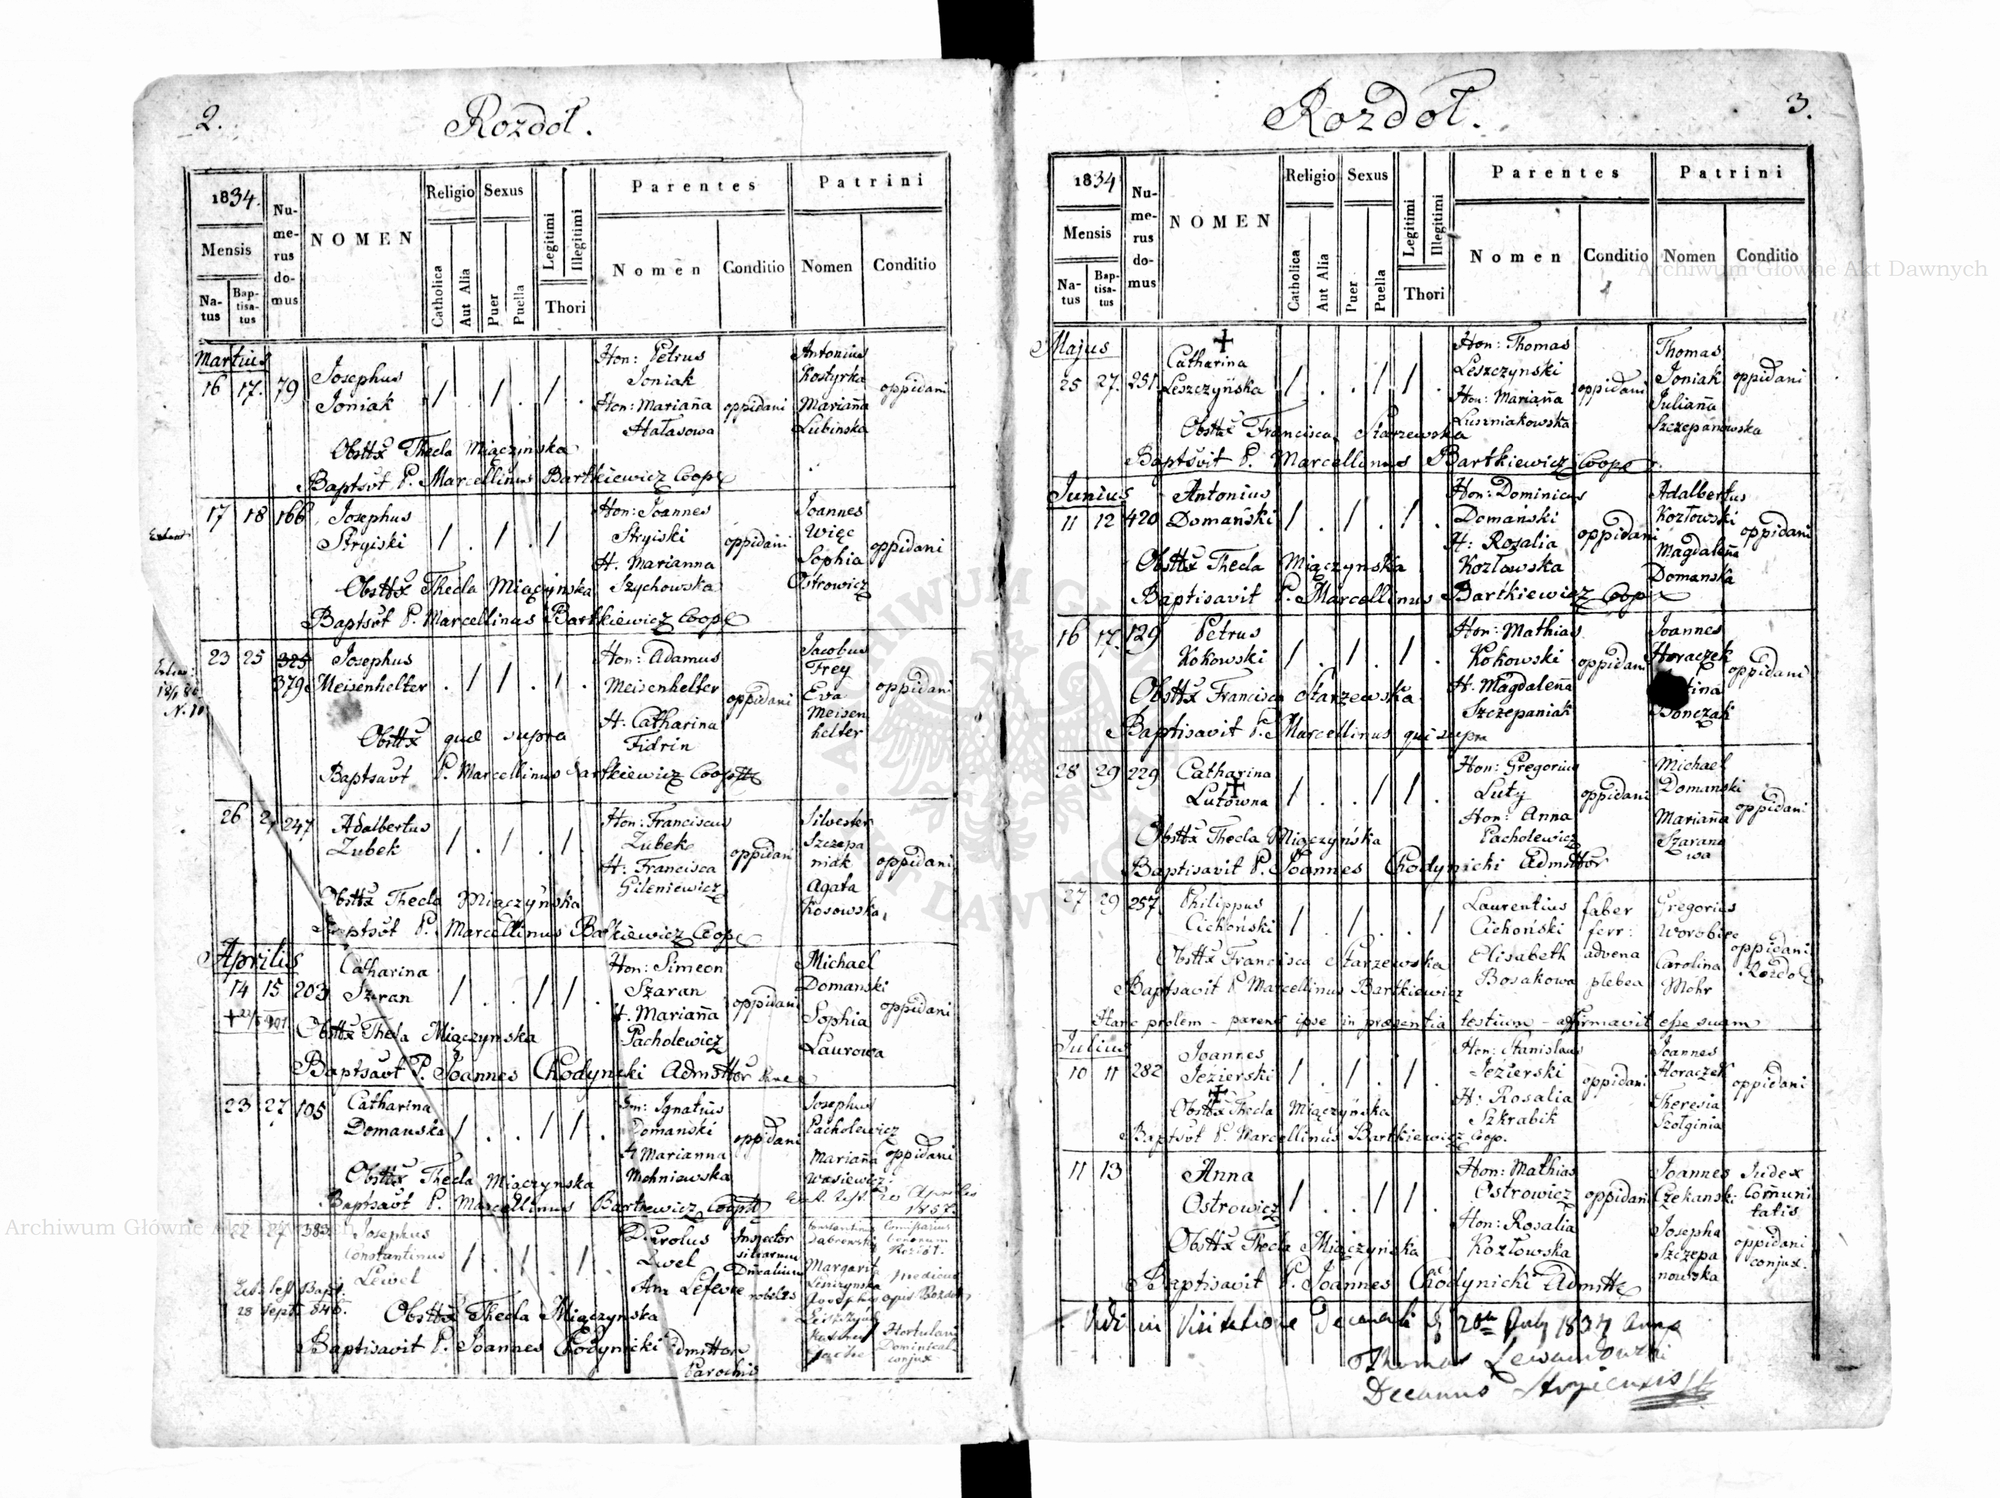 2.
Rozdoł.
1834.
Mensis
Natus
Baptisatus
Numerus domus
NOMEN
Religio
Catholica
Aut Alia
Sexus
Puer
Puella
Legitimi
Illegitimi
Thori
Parentes
Nomen
Conditio
Patrini
Nomen
Conditio
Martius
16 17. 79
Josephus
Joniak
/ . / . / .
Hon: Petrus
Joniak
Hon: Mariana
Hałasowa
oppidani
Antonius
Kostyrka
Mariana
Lubinska
oppidani
Obsttx Thecla Miączińska
Baptsvt P. Marcellinus Bartkiewicz Coop
17 18 166
Josephus
Stryiski
/ . / . /
Hon: Joannes
Stryiski
H. Marianna
Szychowska
oppidani
Joannes
Więc
Sophia
Ostrowicz
oppidani
Obsttx Thecla Miączyńska
Baptsvt P. Marcellinus Bartkiewicz Coop
23 25 325
379
Josephus
Meisenhelter
. / / . . .
Hon: Adamus
Meisenhelter
H: Catharina
Fidrin
oppidani
Jacobus
Frey
Eva
Meisen
helter
oppidani
Obsttx quae supra
Baptsavt P. Marcellinus Bartkiewicz Coop
26 247
Adalbertus
Zubek
/ . / . / .
Hon: Franciscus
Zubek
H: Francisca
Gileniewicz
oppidani
Silvester
Szczepa
niak
Agata
Kosowska
oppidani
Obsttx Thecla Miączyńska
Baptsvt P. Marcellinus Bartkiewicz Coop
Aprilis
14 15 203
Catharina
Szaran
/ . . / / .
Hon: Simeon
Szaran
H. Mariana
Pacholewicz
oppidani
Michael
Domanski
Sophia
Laurowa
oppidani
Obsttx Thecla Miączynska
Baptsavt P. Joannes Chodynicki Admsttor
23 27 105
Catharina
Domanska
/ . . / / .
Hon: Ignatius
Domanski
H Marianna
Mohniewska
oppidani
Josephus
Pacholewicz
Mariana
Wasiewicz
oppidani
Obsttx Thecla Miączynska
Baptsavt P. Marcellinus Bartkiewicz Coop
22 27 383
Josephus
Constantinus
Lewel
/ . / . / .
Carolus
Lwel
Anna Lefevre
Inspector
silvarum
Constantinus
Dabrowski
Margarita
Obsttx Thecla Miączynska
Baptisavit P. Joannes Chodynicki Admsttor
Parochis
Hortulani
Dominical
conjux
3.
Rozdoł.
1834
Mensis
Natus
Baptisatus
Numerus domus
NOMEN
Religio
Catholica
Aut Alia
Sexus
Puer
Puella
Legitimi
Illegitimi
Thori
Parentes
Nomen
Conditio
Patrini
Nomen
Conditio
Majus
25 27. 251.
Catharina
Leszczyńska
/ . . / / .
Hon: Thomas
Leszczynski
Hon: Mariana
Luszniakowska
oppidani
Thomas
Joniak
Juliana
Szczepanowska
oppidani
Obsttx Francisca Starzewska
Baptsvit P. Marcellinus Bartkiewicz Cooper.
Junius
11 12 420
Antonius
Domański
/ . / . / .
Hon: Dominicus
Domański
H: Rozalia
Kozłowska
oppidani
Adalbertus
Kozłowski
Magdalena
Domanska
oppidani
Obsttx Thecla Miączynska
Baptisavit P. Marcellinus Bartkiewicz Coop
16 17. 129
Petrus
Kokowski
/ . / . / .
Hon: Mathias
Kokowski
H: Magdalena
Szczepaniak
oppidani
Joannes
Horaczek
Bonczak
oppidani
Obsttx Francisca Starzewska
Baptisavit P. Marcellinus qui supra
28 29 229
Catharina
Lutowna
/ . . / / .
Hon: Gregorius
Luty
Hon: Anna
Pacholewicz
oppidani
Michael
Domanski
Mariana
Szarano
wa
oppidani
Obsttx Thecla Miączyńska
Baptisavit P. Joannes Chodynicki Admsttor
27 29 257
Philippus
Cichoński
/ . / . . /
Laurentius
Cichoński
Elisabeth
Bosakowa
faber
ferr:
advena
plebea
Gregorius
Worobiec
Carolina
Mohr
oppidani
Rozdoł
Obsttx Francisca Starzewska
Baptsavit P Marcellinus Bartkiewicz
Hanc prolem - parens ipse in praesentia testium - affirmavit esse suam
Julius
10 11 282
Joannes
Jezierski
/ . / . / .
Hon: Stanislaus
Jezierski
H: Rosalia
Szkrabik
oppidani
Joannes
Horaczek
Theresia
Szołginia
oppidani
Obsttx Thecla Miączyńska
Baptsvt P. Marcellinus Bartkiewicz Coop.
11 13
Anna
Ostrowicz
/ . . / / .
Hon: Mathias
Ostrowicz
Hon: Rosalia
Kozłowska
oppidani
Joannes
Czekanski
Josepha
Szczepa
nowska
Judex
Comuni
tatis
oppidani
conjux.
Obsttx Thecla Miączyńska
Baptisavit P. Joannes Chodynicki Admstto
Vidi in Visitatione Decanali 20 July 1837 Anno
Thomas Lewandowski
Decanus Stryiensis
Archiwum Główne Akt Dawnych
Archiwum Główne Akt Dawnych
ARCHIWUM GŁÓWNE AKT DAWNYCH